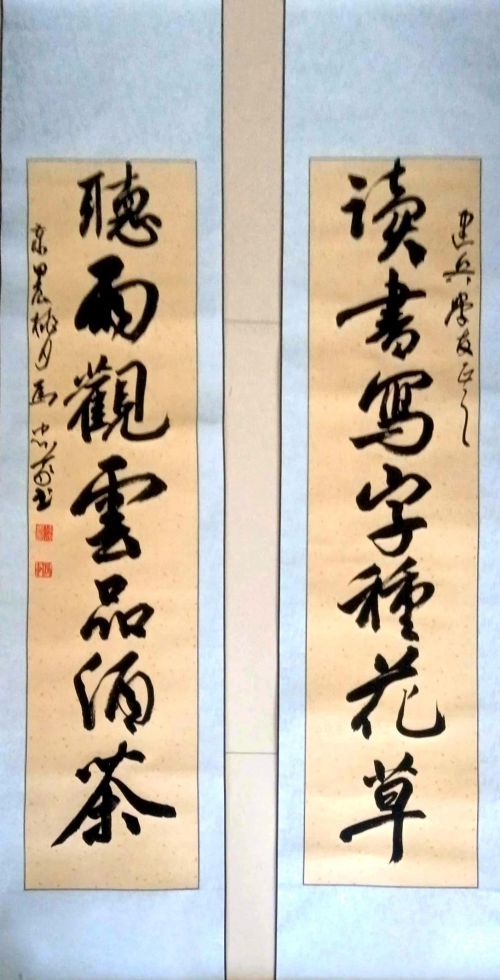 建兵學友正之
讀書寫字種花草
聽雨觀雲品酒茶